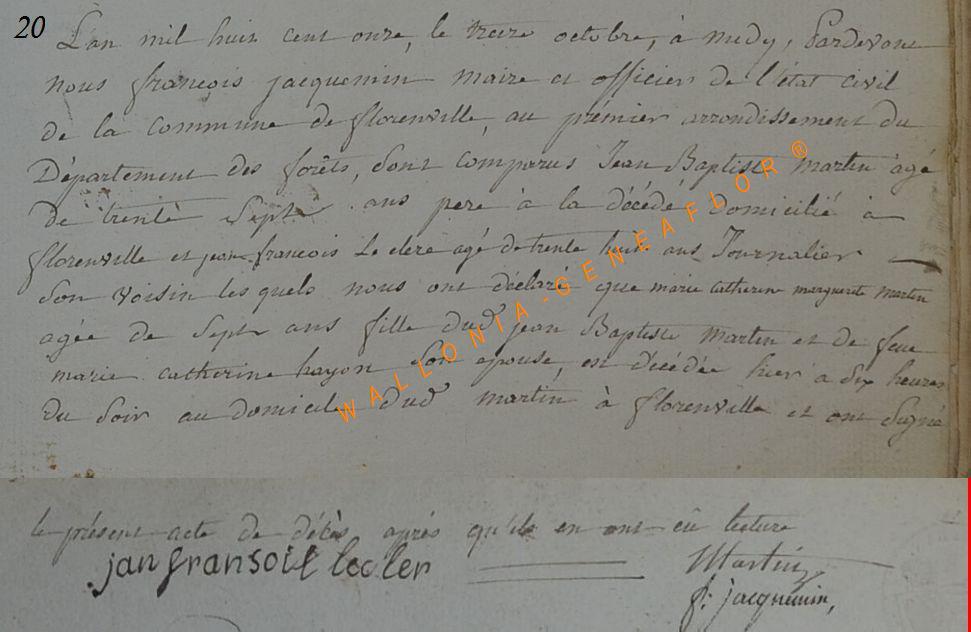 20
L'an mil huit cent onze, le treize octobre, à midy, Pardevant
nous françois jacquemin maire et officier de l'état civil
de la Commune de florenville, au prémier arrondissement du
Département des forêts, sont comparus Jean Baptiste martin agé
De trente Sept ans pere à la décédé domicilié à
florenville et jean françois Leclerc agé de trente huit ans Journalier
Son voisin les quels nous ont déclaré que marie catherine marguerite martin
agée de Sept ans fille dud jean Baptiste martin et de feue
marie catherine hayon Son epouse, est décédée hier a Six heures
Du Soir au domicile dud martin à florenville et ont Signé
WALLONIA-GENEAFLOR®
le présent acte de décès aprés qu'ils en ont eû lecture
jan fransoit lecler
Martin
f: jacquemin,